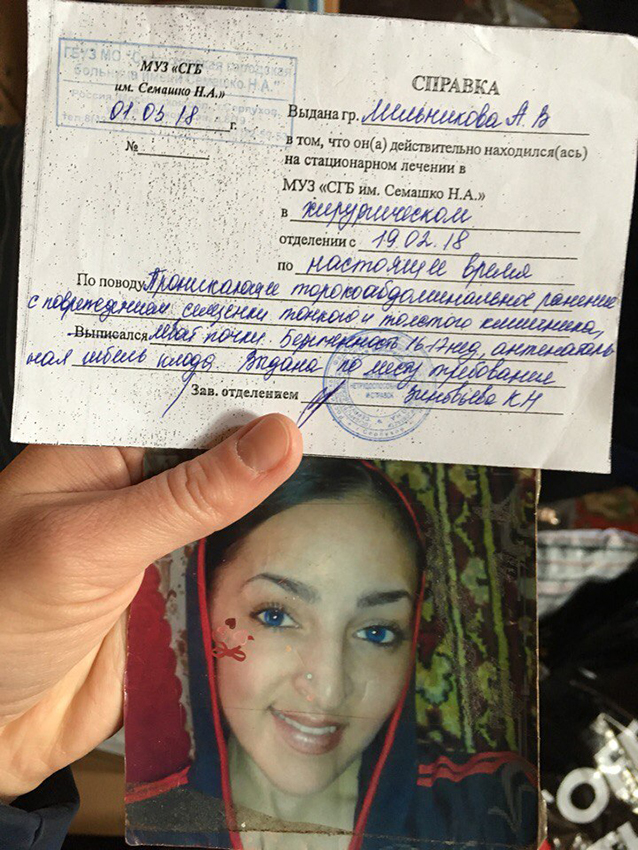 МУЗ «СГБ
им. Семашко Н.А.»
01.03.18 г.
№
СПРАВКА
Выдана гр. Мельникова А. В
в том, что он(а) действительно находился(ась)
на стационарном лечении в
МУЗ «СГБ им. Семашко Н.А.»
в хирургическом
отделении с 19.02.18
по настоящее время
По поводу Проникающее торокоабдоминальное ранение
с повреждением селезенки тонкого и толстого кишечника,
Выписался левой почки. Беременность 16-17нед, антенаталь
ная гибель плода. Выдана по месту требования
Зав. отделением Зиновьева К Н